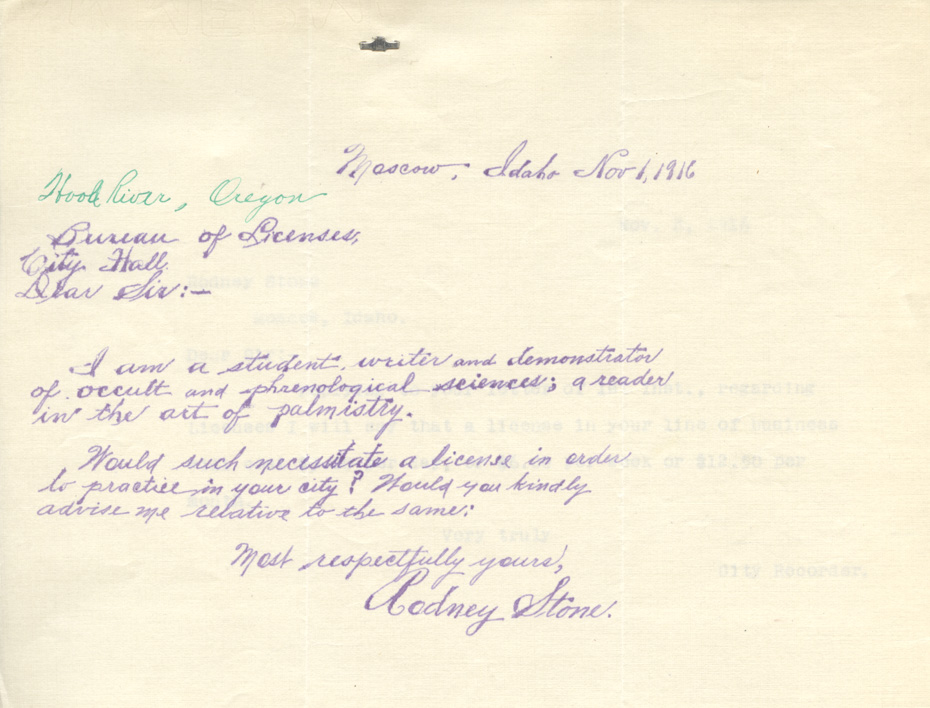 Moscow, Idaho Nov 1, 1916
Hood River, Oregon
Bureau of Licenses,
City Hall.
Dear Sir:—
I am a student, writer and demonstrator
of occult and phrenological sciences; a reader
in the art of palmistry.
Would such necessitate a license in order
to practice in your city? Would you kindly
advise me relative to the same:
Most respectfully yours,
Rodney Stone.
Rodney Stone
Idaho.
Dear
your letter of 1st inst., regarding
License, I will say that a license in your line of business
or $12.50 per
Very truly
City Recorder.